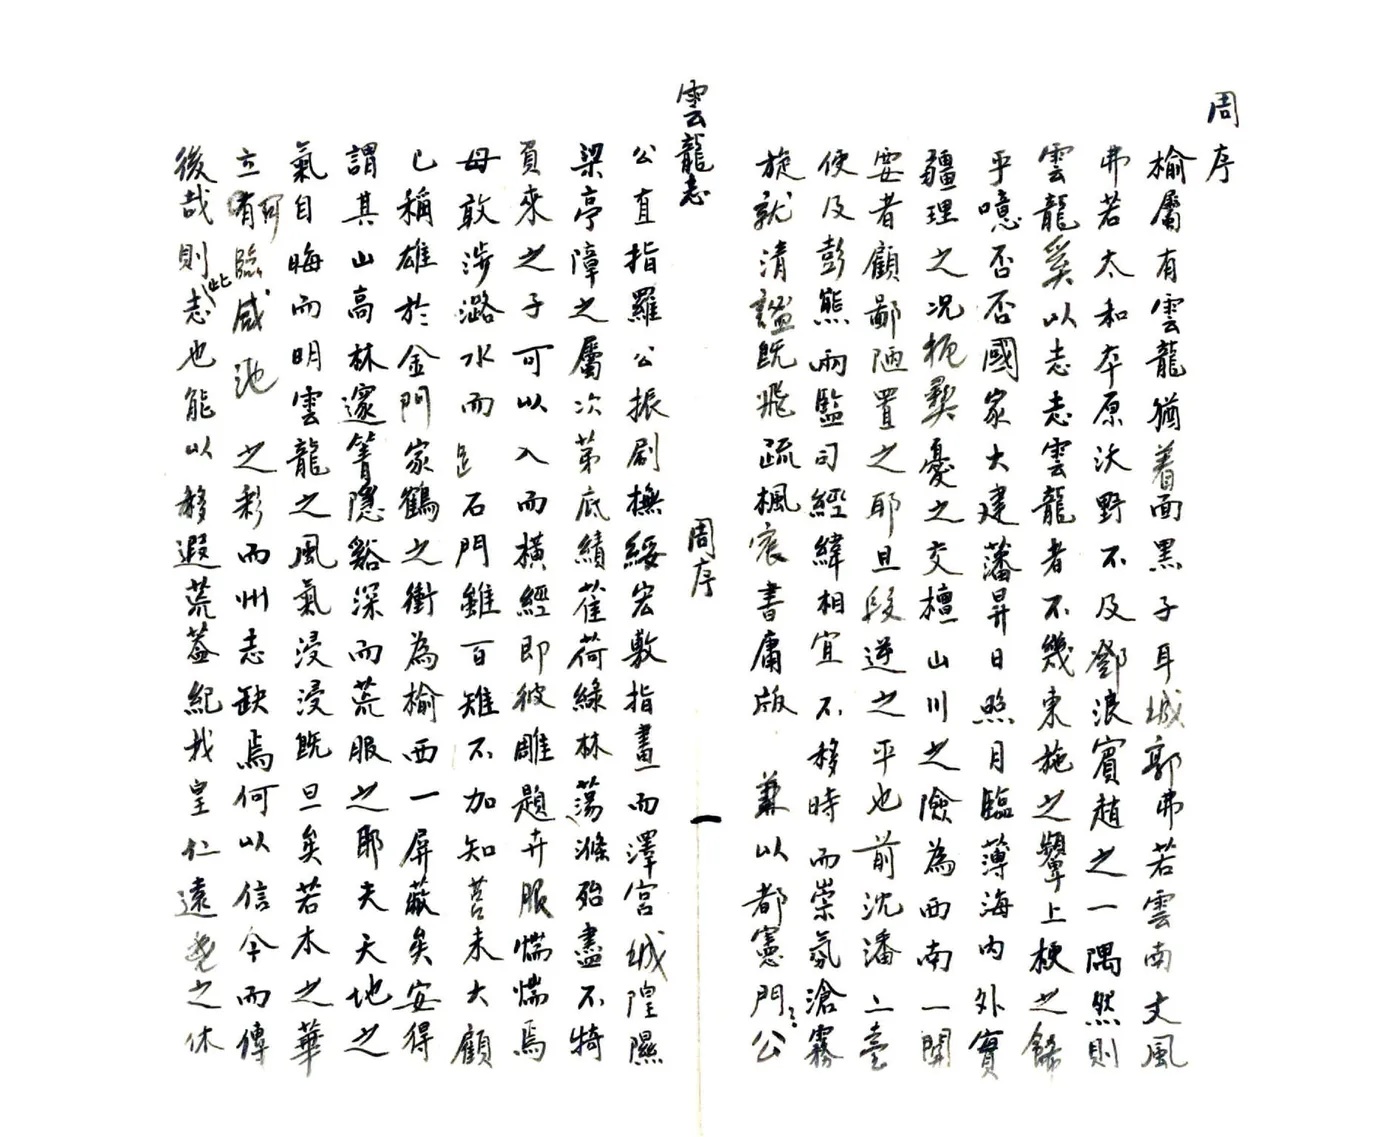 周序
榆屬有雲龍猶着面黑子耳城郭弗若雲南文風
弗若太和夲原沃野不及鄧浪賓趙之一隅然則
雲龍奚以志志雲龍者不幾東施之顰上梗之餘
乎噫否否國家大建藩昇日照月臨薄海內外實
疆理之况扼彜憂之交檀山川之險為西南一関
要者顧鄙陋置之耶旦段逆之平也前沈潘二臺
使及彭熊兩監司經緯相宜不移時而崇氛滄霧
旋就清謐既飛疏楓宸書庸版 兼以都憲門公
雲龍志
周序
一
公直指羅公振刷撫綏宏敷指畫而澤宮城隍隰
梁亭障之屬次第底績萑荷綠林蕩滌殆盡不犄
員來之子可以入而横經即彼雕題卉服惴惴焉
毋敢涉潞水而 石門雖百雉不加知莒未大顧
已稱雄於金門家鶴之衝為榆西一屏蔽矣安得
謂其山高林邃箐隱谿深而荒服之耶夫天地之
氣自晦而明雲龍之風氣浸浸既旦矣若木之華
立有何臨咸池 之彩而州志缺焉何以信今而傳
後哉則此志也能以移遐荒葢紀我皇仁遠 之休